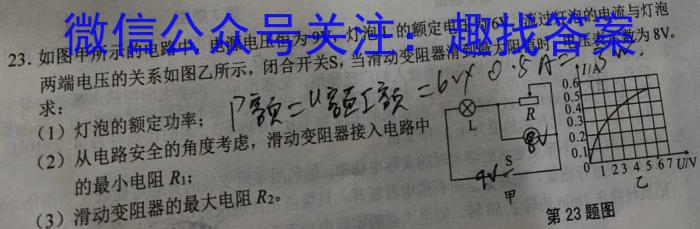 微信公众号关注：趣找答案
23. 如图甲所示的电路中，电源电压恒为9V，灯泡L的额定电压为6V，流过灯泡的电流与灯泡
两端电压的关系如图乙所示，闭合开关S，当滑动变阻器滑到最大阻值时，电压表示数为8V。
求：
(1) 灯泡的额定功率；
P额=U额I额=6V×0.5A=3W
(2) 从电路安全的角度考虑，滑动变阻器接入电路中
的最小电阻 R₁；
(3) 滑动变阻器的最大电阻 R₂。
L
R
8V
9V
S
甲
I/A
0.6
0.5
0.4
0.3
0.2
0.1
0 1 2 3 4 5 6 7 U/V
乙
第 23 题图